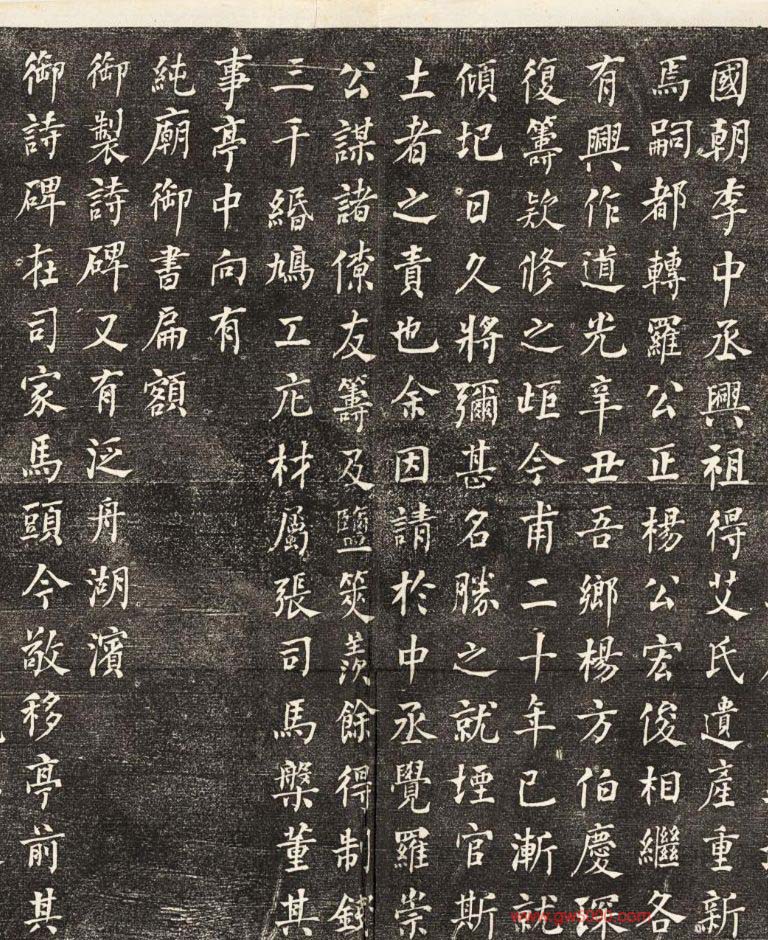 國朝李中丞興祖得艾氏遺產重新
焉嗣都轉羅公正楊公宏俊相繼各
有興作道光辛丑吾鄉楊方伯慶琛
復籌款修之距今甫二十年已漸就
傾圯日久將彌甚名勝之就堙官斯
土者之責也余因請於中丞覺羅崇
公謀諸僚友籌及鹽筴羨餘得制錢
三千緡鳩工庀材屬張司馬槃董其
事亭中向有
純廟御書扁額
御製詩碑又有泛舟湖濱
御詩碑在司家馬頭今敬移亭前其